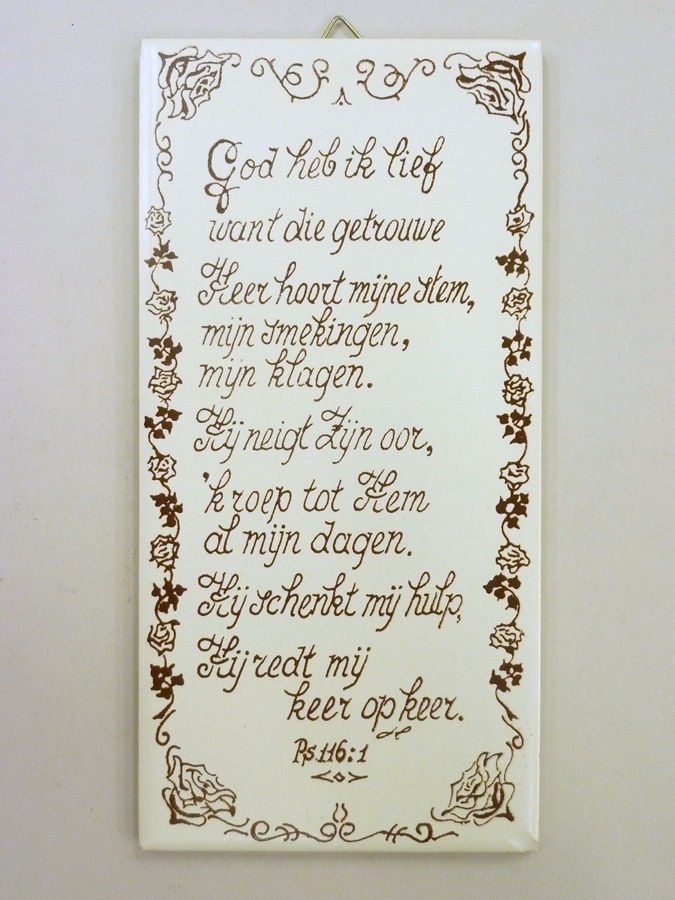 God heb ik lief
want die getrouwe
Heer hoort mijne stem,
mijn smekingen,
mijn klagen.
Hij neigt Zijn oor,
'k roep tot Hem
al mijn dagen.
Hij schenkt mij hulp,
Hij redt mij
keer op keer.
Ps.116:1